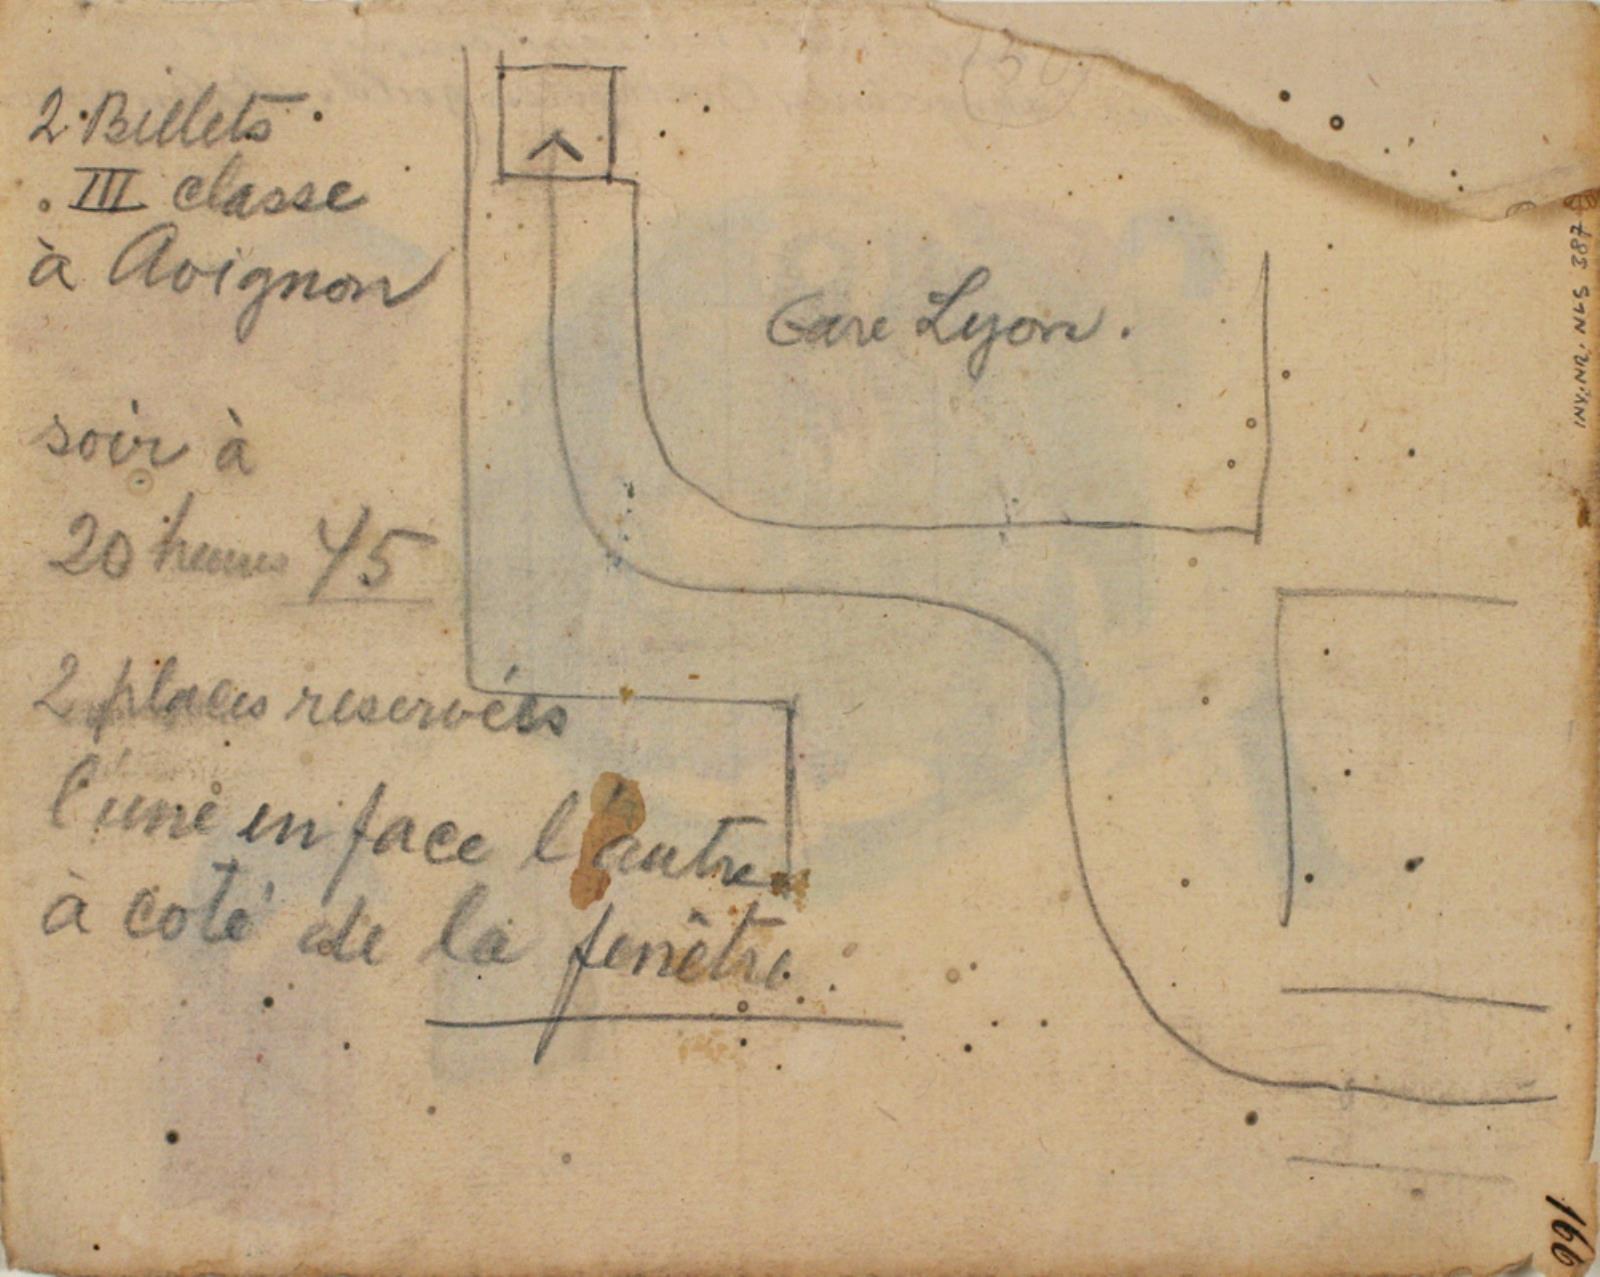 2 Billets
III classe
à Avignon
soir à
20 heures 45
2 places reservées
l'une en face l'autre
à coté de la fenêtre
Gare Lyon.
INV. NR. NLS 387
166